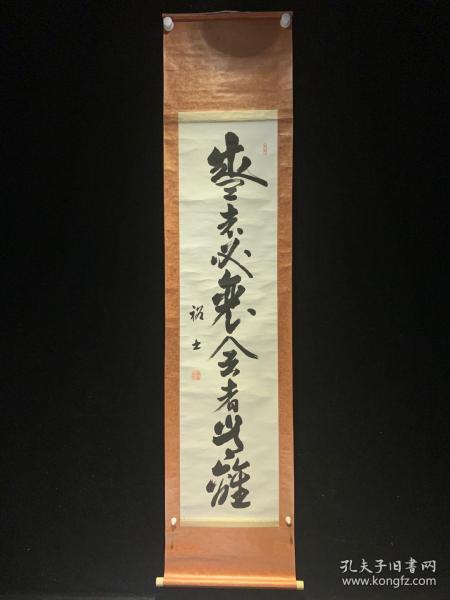 盛者必衰会者定離
裕士
孔夫子旧书网
www.kongfz.com